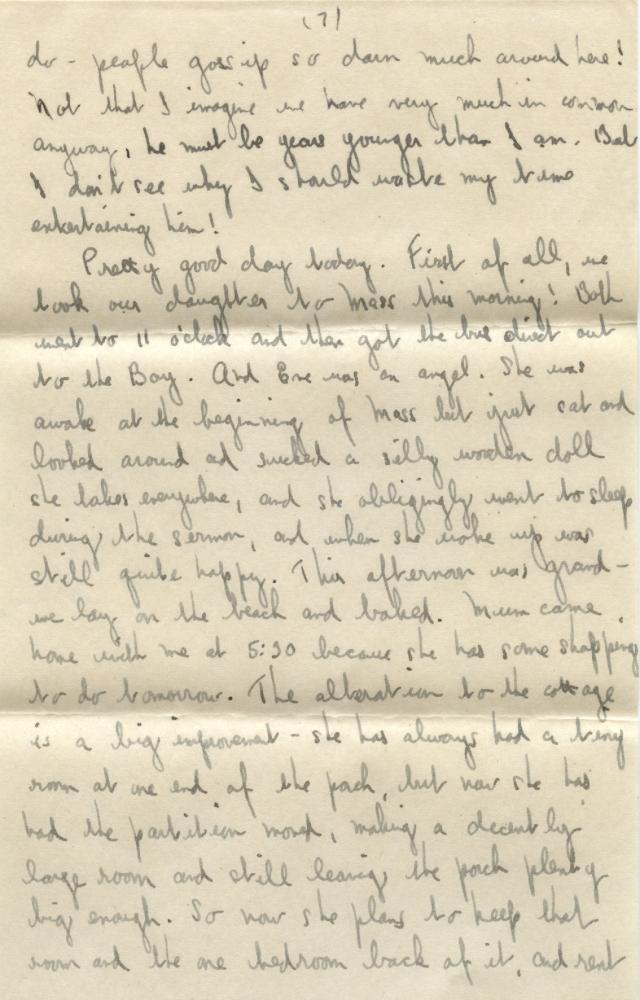 (7)
do - people gossip so darn much around here!
Not that I imagine we have very much in common
anyway, he must be years younger than I am. But
I don't see why I should waste my time
entertaining him!
Pretty good day today. First of all, we
took our daughter to Mass this morning! Both
went to 11 o'clock and then got the bus direct out
to the Bay. And Eve was an angel. She was
awake at the beginning of Mass but just sat and
looked around and sucked a silly wooden doll
she takes everywhere, and she obligingly went to sleep
during the sermon, and when she woke up was
still quite happy. This afternoon was grand -
we lay on the beach and baked. Mum came
home with me at 5:30 because she has some shopping
to do tomorrow. The alteration to the cottage
is a big improvement - she has always had a tiny
room at one end of the porch, but now she has
had the partition moved, making a decently
large room and still leaving the porch plenty
big enough. So now she plans to keep that
room and the one bedroom back of it, and rent